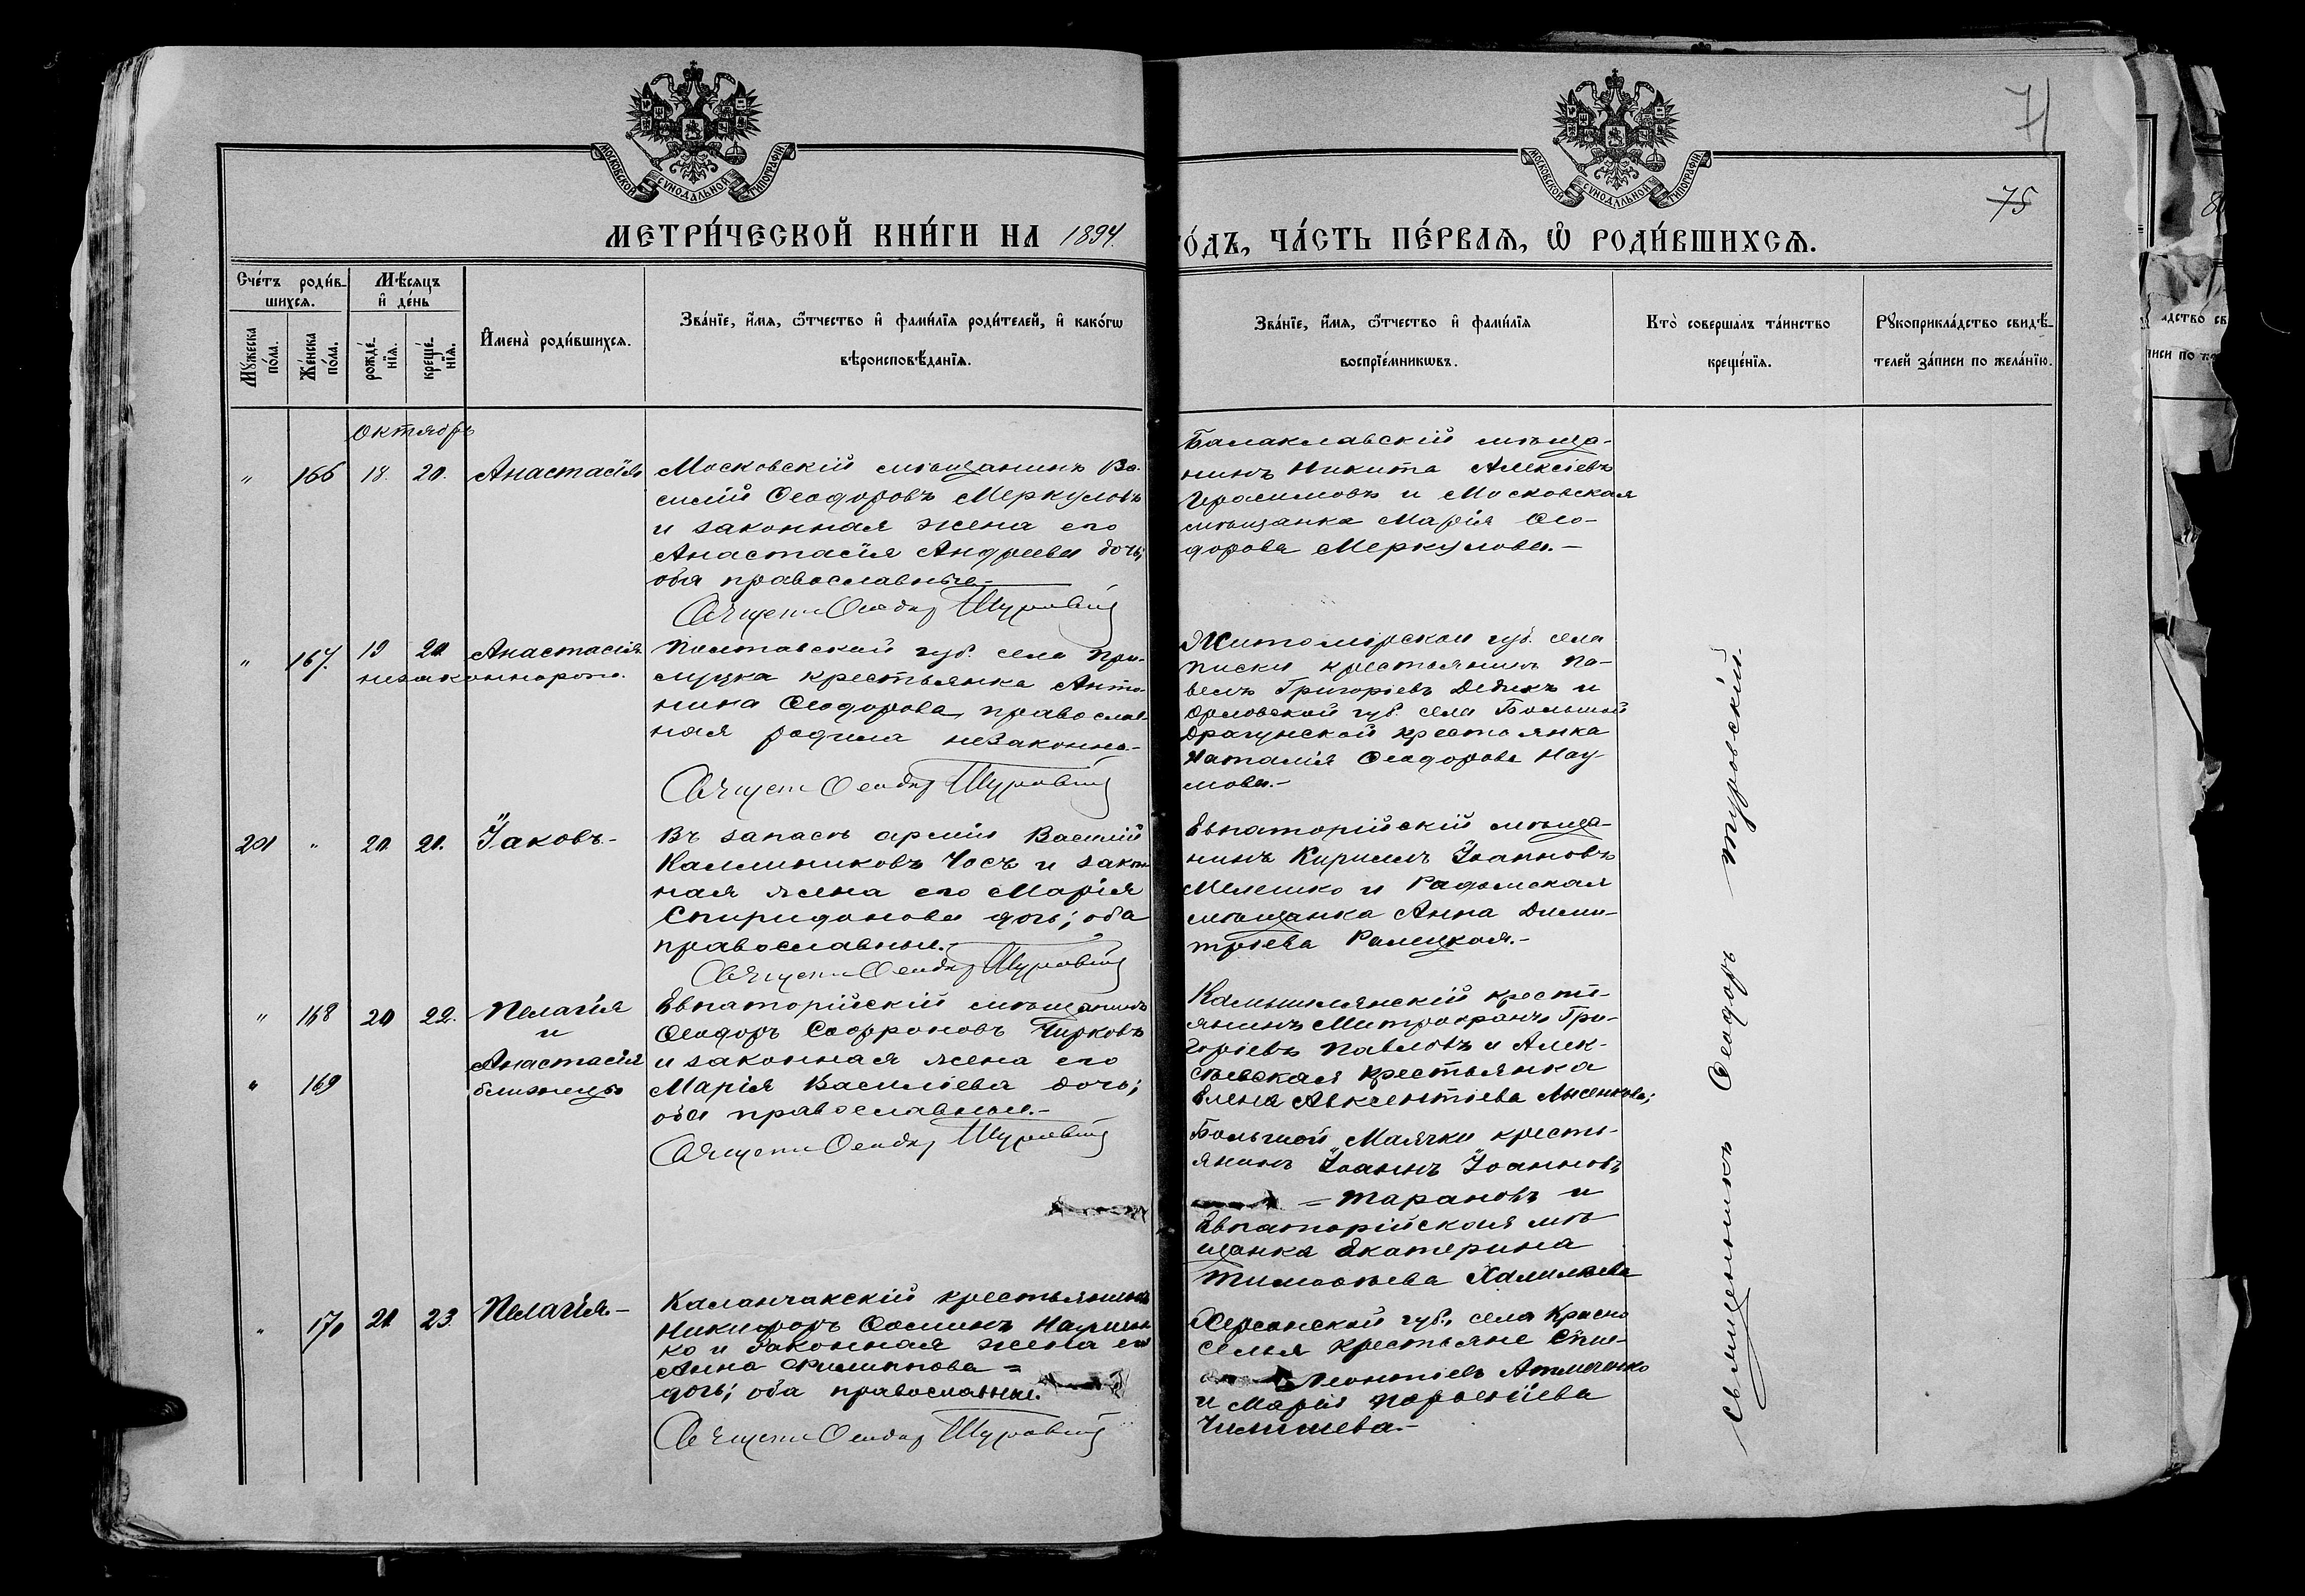 71
75
МОСКОВСКОЙ СѴНОДАЛЬНОЙ ТИПОГРАФІИ
МОСКОВСКОЙ СѴНОДАЛЬНОЙ ТИПОГРАФІИ
МЕТРИ́ЧЕСКОЙ КНИ́ГИ НА 1894
ГО́ДЪ, ЧА́СТЬ ПЕ́РВАѦ, Ѡ РОДИ́ВШИХСѦ.
Сче́тъ роди́в-
шихсѧ.
Мѣ́сѧцъ
и҆ де́нь
Мꙋ́жеска по́ла.
Же́нска по́ла.
рожде́-нїѧ.
креще́-нїѧ.
И҆мена̀ роди́вшихсѧ.
Зва́нїе, и҆́мѧ, ѻ҆́тчество и҆ фами́лїѧ роди́телей, и҆ како́гѡ
вѣроисповѣ́данїѧ.
Зва́нїе, и҆́мѧ, ѻ҆́тчество и҆ фами́лїѧ
воспрїе́мникѡвъ.
Кто̀ соверша́лъ та́инство
креще́нїѧ.
Рꙋкоприкла́дство свидѣ́-
телей за́писи по жела́нїю.
Октябрь
" 166 18. 20. Анастасія
Московскій мѣщанинъ Ва-
силій Ѳеодоровъ Меркуловъ
и законная жена его
Анастасія Андреева дочь;
оба православные.-
Священ. Ѳеодор Туровскій
Балаклавскій мѣща-
нинъ Никита Алексіевъ
Герасимовъ и Московская
мѣщанка Марія Ѳео-
дорова Меркулова.-
" 167. 19 20. Анастасія
незаконнорож.
Полтавской губ. села При-
луцка крестьянка Анто-
нина Ѳеодорова, православ-
ная родила незаконно-
Священ. Ѳеодор Туровскій
Житомірской губ. села
Писки крестьянинъ Па-
велъ Григоріевъ Дедихъ и
Орловской губ. села Большой
Драгунской крестьянка
Наталія Ѳеодорова Нау-
мова.-
201 " 20. 21. Іаковъ.-
Въ запасѣ арміи Василій
Каллиниковъ Чосъ и закон-
ная жена его Марія
Спиридонова дочь; оба
православные.-
Священ. Ѳеодор Туровскій
Евпаторійскій мѣща-
нинъ Кириллъ Іоанновъ
Мелешко и Радомская
мѣщанка Анна Дими-
тріева Ралецкая.-
" 168 20 22. Пелагія
и
Анастасія
" 169 близнецы
Евпаторійскій мѣщанинъ
Ѳеодоръ Софроновъ Чирковъ
и законная жена его
Марія Василіева дочь;
оба православные.-
Священ. Ѳеодор Туровскій
Камышлянскій кресть-
янинъ Митрофанъ Гри-
горіевъ Павловъ и Алек-
сѣевская крестьянка
Елена Авксентіева Лысенкова;
Большой Маячки кресть-
янинъ Іоаннъ Іоанновъ
= Тарановъ и
Евпаторійская мѣ-
щанка Екатерина
Тимоѳеева
" 170 21. 23. Пелагія.-
Каланчакскій крестьянинъ
Никифоръ Ѳоминъ
ко и законная жена его
Анна Филиппова =
дочь; оба православные.
Священ. Ѳеодор Туровскій
Херсонской губ., села Красно
селья крестьяне
Леонтіевъ
и Марія Парѳеніева
Чилишева.-
Священникъ Ѳеодоръ Туровскій.